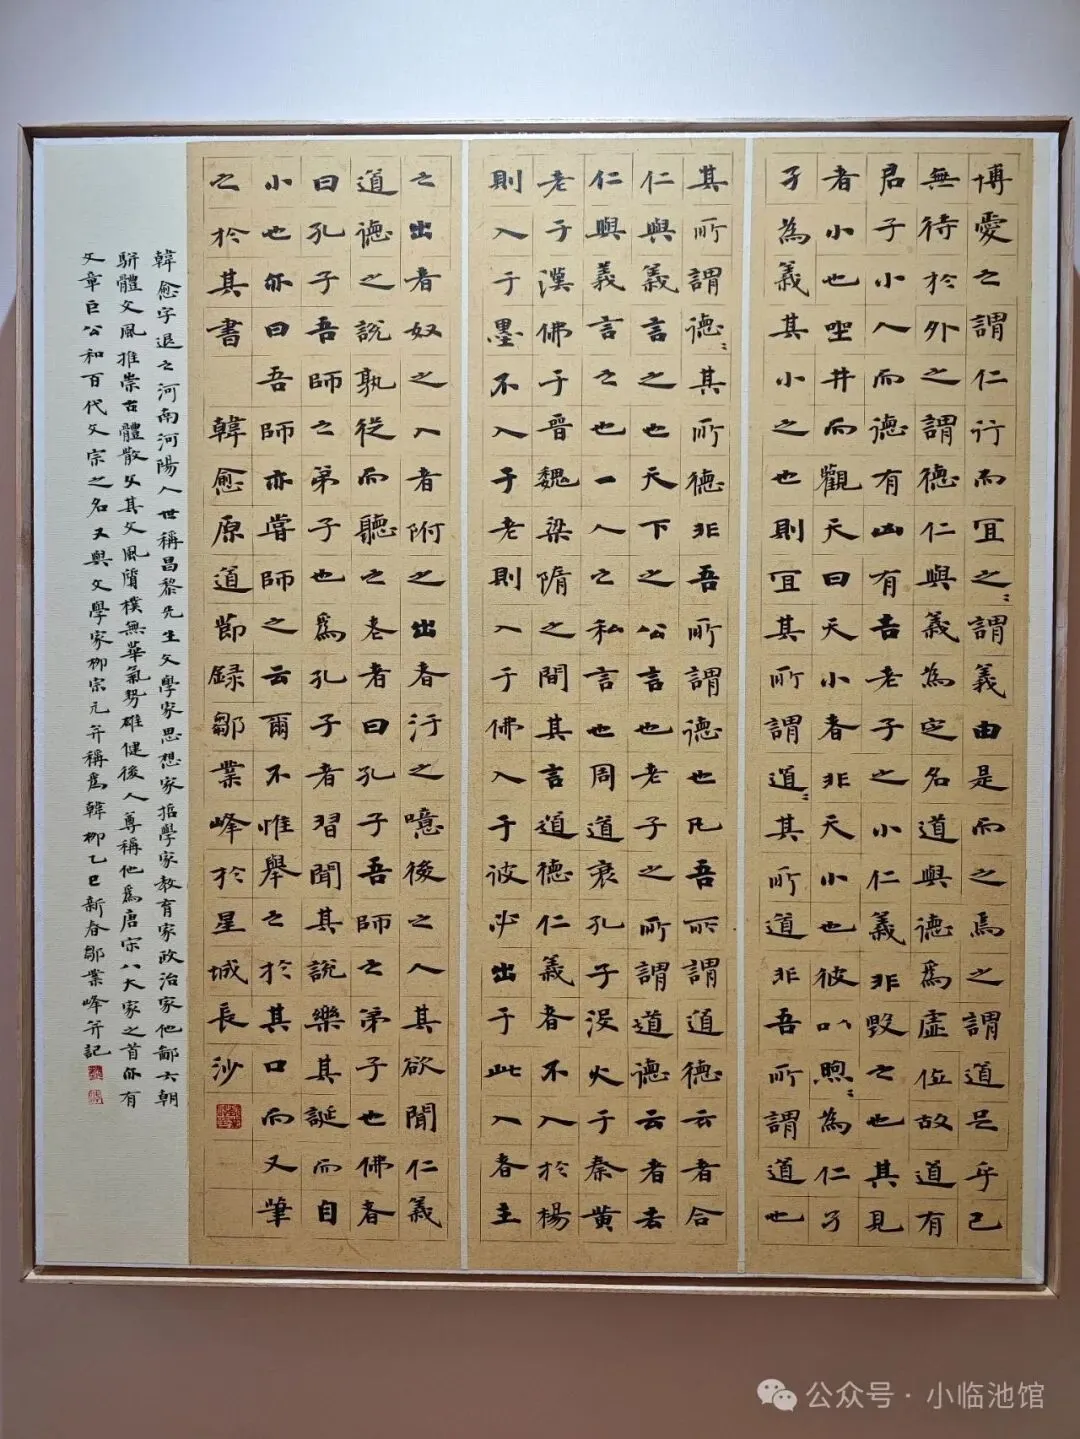 博愛之謂仁行而宜之〻謂義由是而之焉之謂道足乎己
無待於外之謂德仁與義為定名道與德爲虛位故道有
君子小人而德有凶有吉老子之小仁義非毀之也其見
者小也坐井而觀天曰天小者非天小也彼以煦〻為仁孑
孑為義其小之也則宜其所謂道〻其所道非吾所謂道也
其所謂德〻其所德非吾所謂德也凡吾所謂道德云者合
仁與義言之也天下之公言也老子之所謂道德云者去
仁與義言之也一人之私言也周道衰孔子没火于秦黄
老于漢佛于晋魏梁隋之間其言道德仁義者不入於楊
則入于墨不入于老則入于佛入于彼必出于此入者主
之出者奴之入者附之出者汙之噫後之人其欲聞仁義
道德之說孰從而聽之老者曰孔子吾師之弟子也佛者
曰孔子吾師之弟子也爲孔子者習聞其說樂其誕而自
小也亦曰吾師亦嘗師之云爾不惟舉之於其口而又筆
之於其書 韓愈原道節録鄒業峰於星城長沙
韓愈字退之河南河陽人世稱昌黎先生文學家思想家哲學家教育家政治家他鄙六朝
駢體文風推崇古體散文其文風質樸無華氣勢雄健後人尊稱他爲唐宋八大家之首亦有
文章巨公和百代文宗之名又與文學家柳宗元并稱爲韓柳乙巳新春鄒業峰并記
公众号·小临池馆